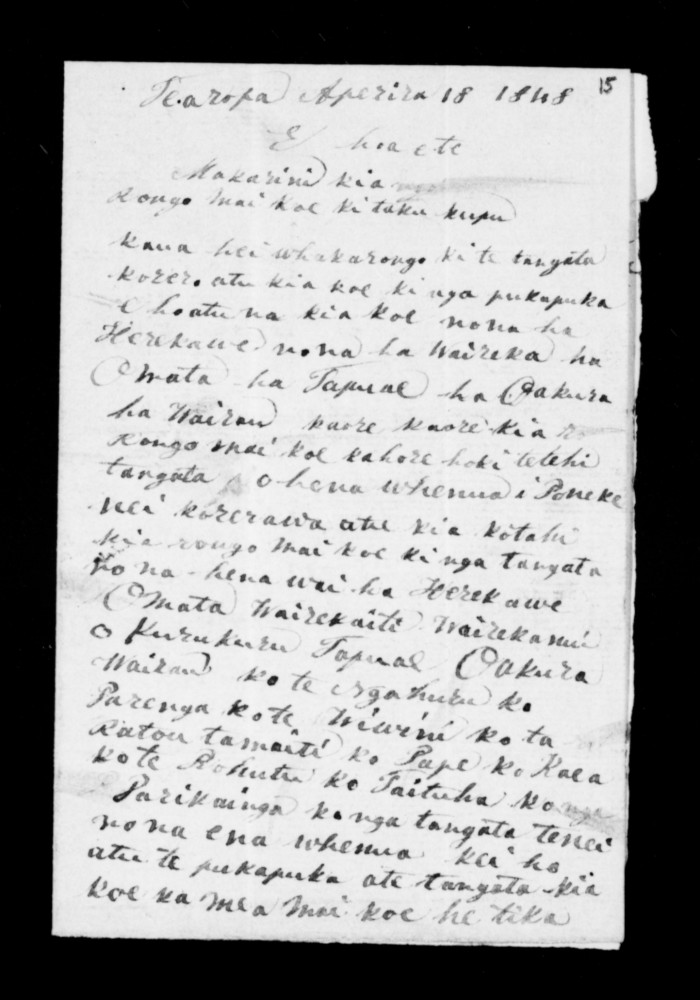 15
Tearopa Aperira 18 1848
E hoa e te
Makarini kia
Rongo mai koe ki taku kupu
kaua hei whakarongo ki te tangata
korero atu kia koe ki nga pukapuka
e hoatu na kia koe nona ha
Herekawe nona ha Waireka ha
Omata ha Tapuae ha Oakura
ha Wairau kaore kaore kia
Rongo mai koe kahore hoki tetehi
tangata o hena whenua i Poneke
nei korerawa atu kia kotahi
kia rongo mai koe ki nga tangata
no na hena wai ha Herekawe
Omata Wairekaiti Wairekanui
o Kurukuru Tapuae Oakura
Wairau ko te Ngahuru ko
Parenga ko te Wiwini ko ta
Ratou tamaiti ko Pape ko Raea
ko te Rohutu ko Taituha ko
Parikainga ko nga tangata tenei
no na ena whenua kei ho
atu te pukapuka ate tangata kia
koe ka mea mai koe he tika